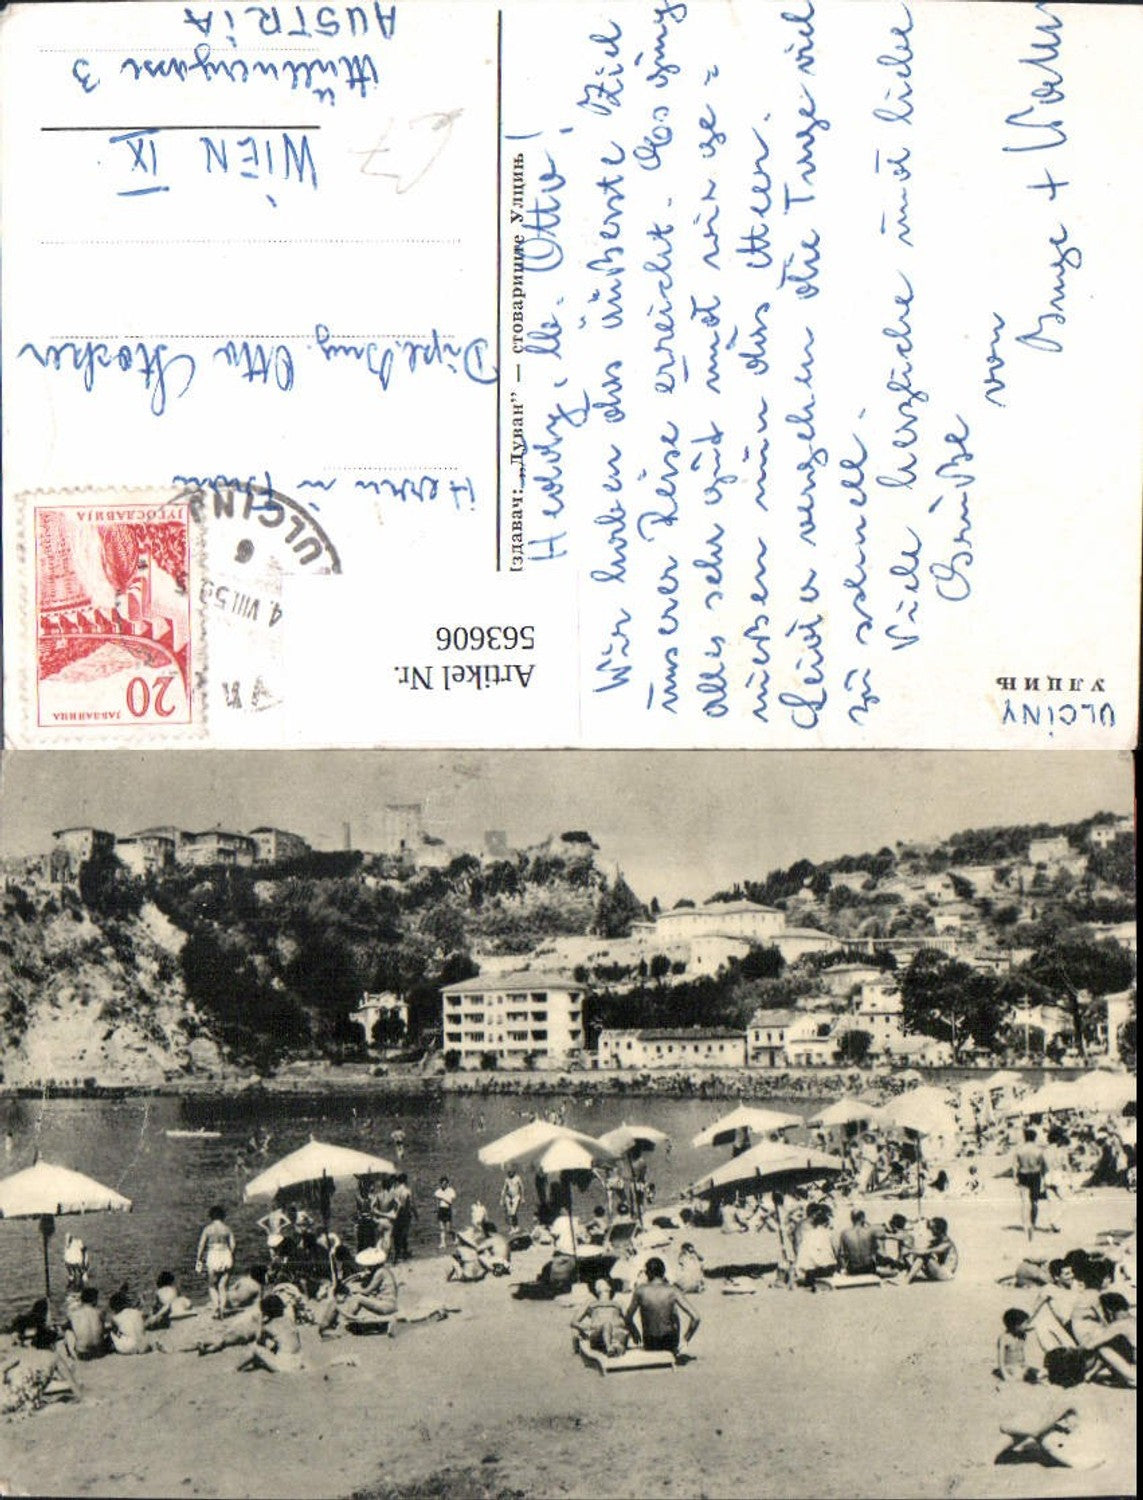 УЛЦИЊ
ULCINY
Heddy, lb. Otto!
Wir haben das äußerste Ziel
unserer Reise erreicht. Es ging
alles sehr gut und wir ge=
nießen nun das Meer.
Leider vergehen die Tage viel
zu schnell.
Viele herzliche und liebe
Grüße
von
Inge +
здавач: „Дуван” — стовариште Улцињ
ЈУГОСЛАВИЈА
20
ЈАБЛАНИЦА
ULCINJ
6
4. VIII 58
Herrn u. Frau
Dipl. Ing. Otto
WIEN IX
Müllnergasse 3
AUSTRIA
€7
Artikel Nr.
563606